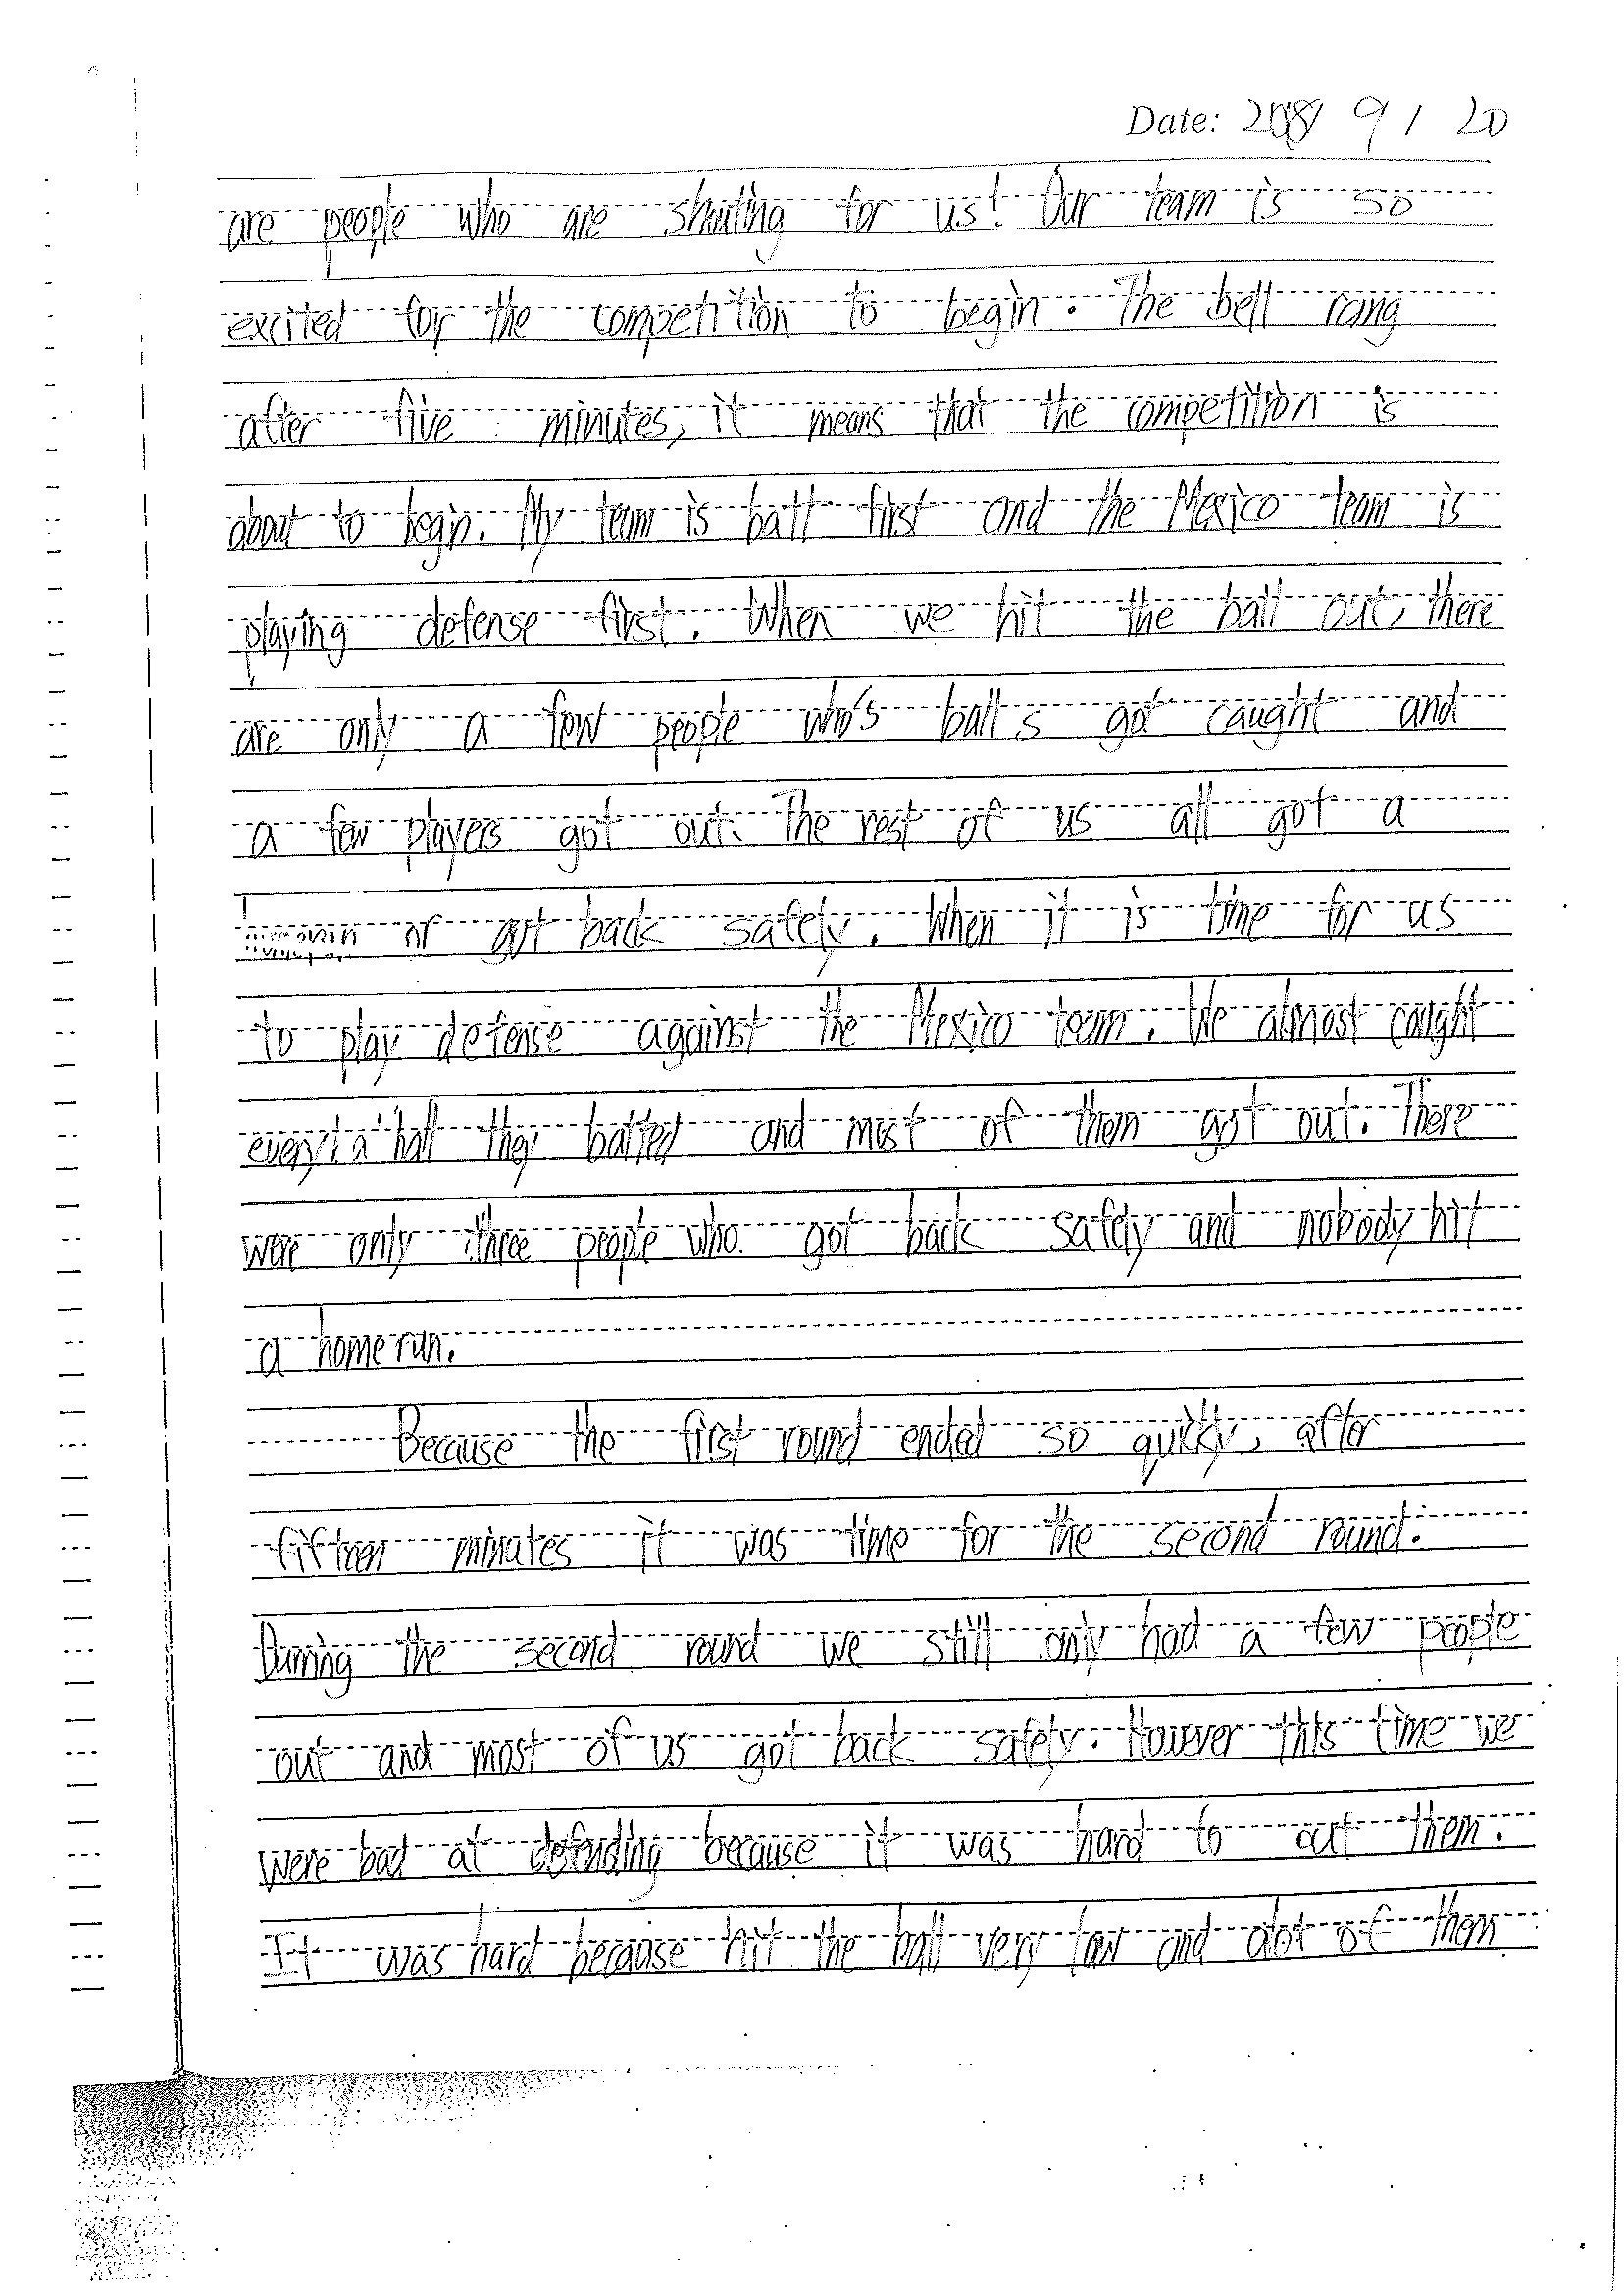 Date: 2018 9 / 20
are people who are shouting for us! Our team is so
excited for the competition to begin. The bell rang
after five minutes, it means that the competition is
about to begin. My team is batt first and the Mexico team is
playing defense first. When we hit the ball out, there
are only a few people who's balls got caught and
a few players got out. The rest of us all got a
or got back safely. When it is time for us
to play defense against the Mexico team. We almost caught
every ball they batted and most of them got out. There
were only three people who got back safely and nobody hit
a home run.
Because the first round ended so quickly, after
fifteen minutes it was time for the second round.
During the second round we still only had a few people
out and most of us got back safely. However this time we
were bad at defending because it was hard to out them.
It was hard because hit the ball very far and alot of them